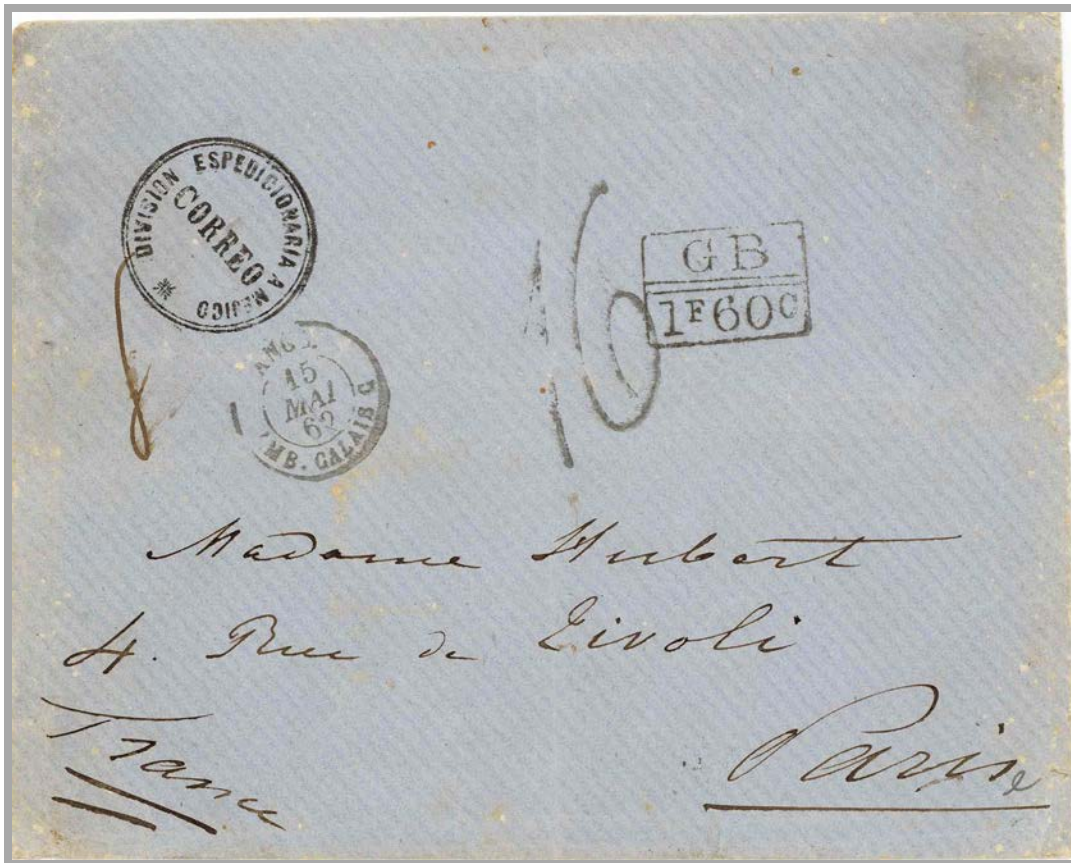 DIVISION ESPEDICIONARIA A MEJICO
CORREO
ANGL.
15
MAI
62
AMB. CALAIS C
16
GB
1F60C
Madame Hubert
4. Rue de Tivoli
Paris
France